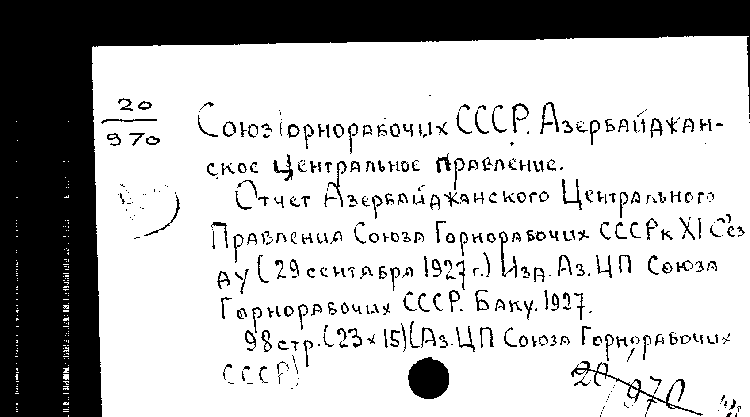 20
970
Союз Горнорабочих СССР. Азербайджан-
ское Центральное Правление.
Отчет Азербайджанского Центрального
Правления Союза Горнорабочих СССР к XI С'ез
ду (29 сентября 1927 г.) Изд. Аз. ЦП Союза
Горнорабочих СССР. Баку. 1927.
98 стр. (23 х 15) (Аз. ЦП Союза Горнорабочих
СССР)
20/970